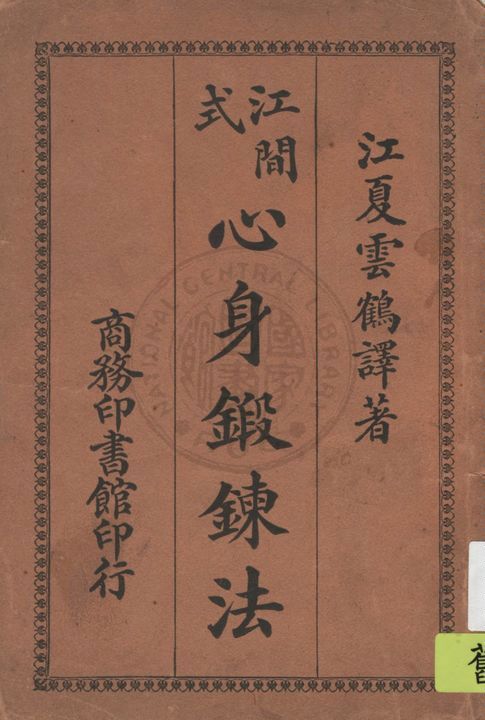 江夏雲鶴譯著
江間式
心身鍛鍊法
商務印書館印行
NATIONAL CENTRAL LIBRARY
舊